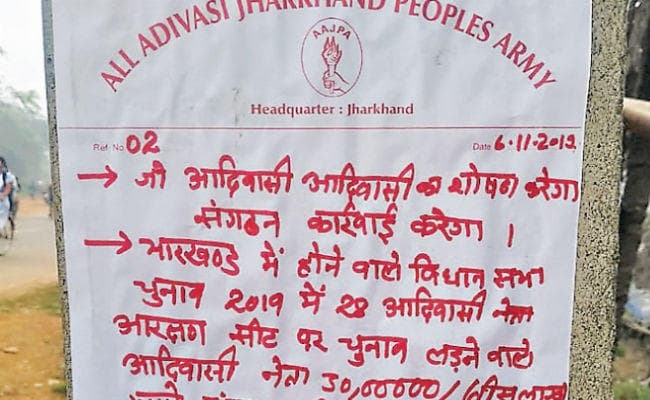 ALL ADIVASI JHARKHAND PEOPLES ARMY
AAJPA
Headquarter : Jharkhand
Ref. No. 02
Date 6.11.2019
→ जो आदिवासी आदिवासी का शोषण करेगा
संगठन कार्रवाई करेगा ।
→ झारखण्ड में होने वाले विधान सभा
चुनाव 2019 में 28 आदिवासी
आरक्षण सीट पर चुनाव लड़ने वाले
आदिवासी नेता 30,00000/ तीस लाख